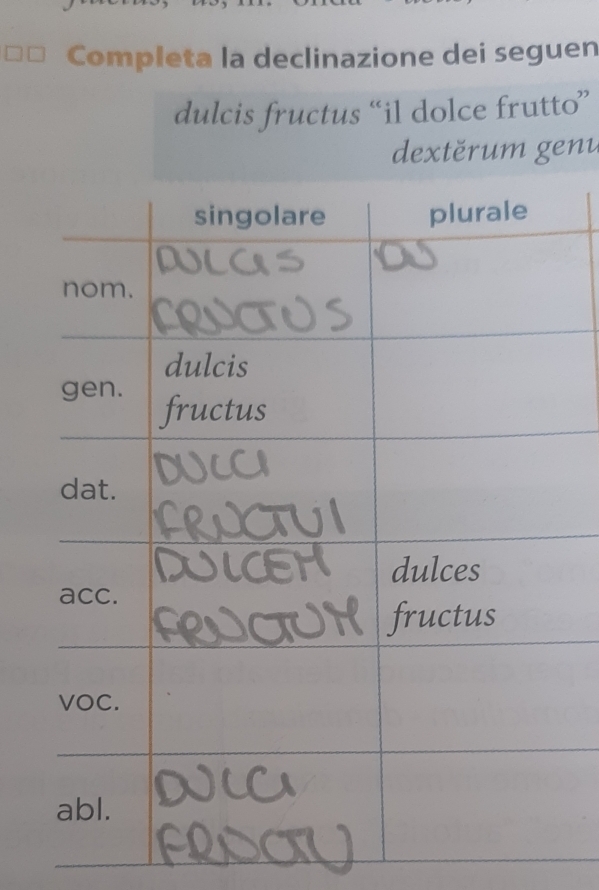 Completa la declinazione dei seguen
dulcis fructus “il dolce frutto”
dextĕrum genu
singolare plurale
nom. DULCIS DU
FRUCTUS
gen. dulcis
fructus
dat. DULCI
FRUCTUI
acc. DULCEM dulces
FRUCTUM fructus
voc.
abl. DULCI
FRUCTU